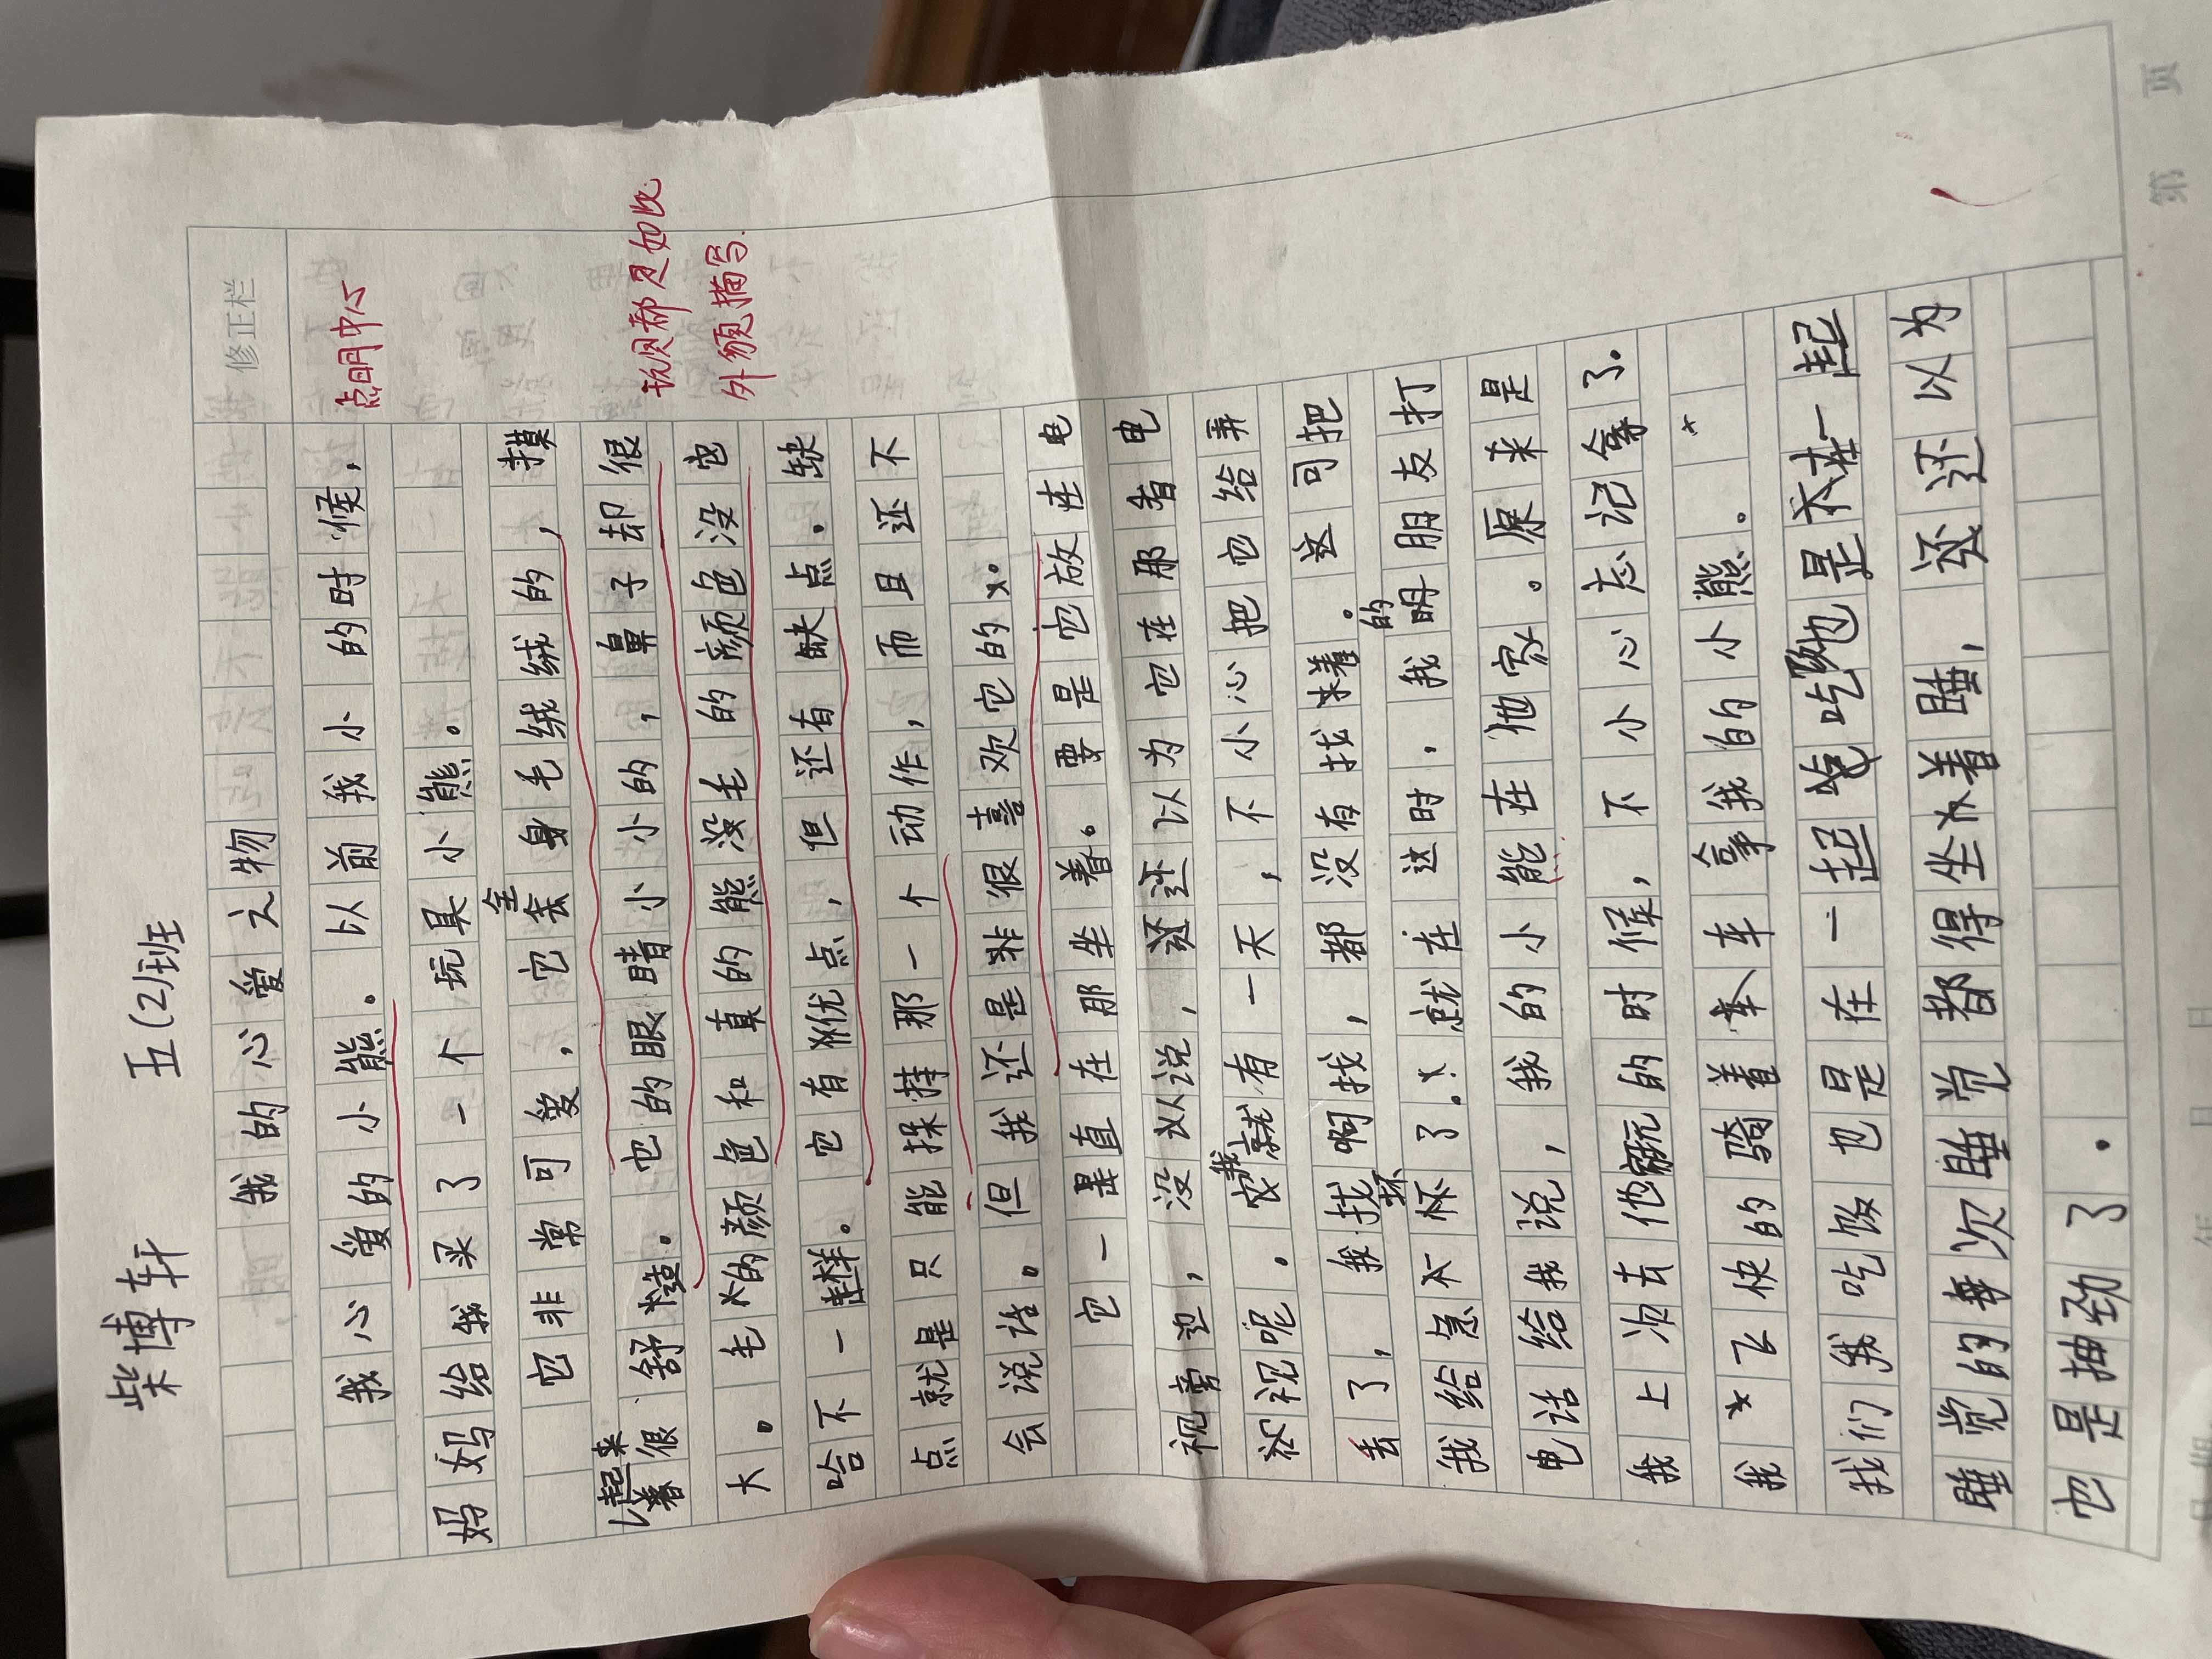 柴博轩 五(2)班
修正栏
我的心爱之物
我心爱的小熊。以前我小的时候，
点明中心
妈妈给我买了一个玩具小熊。
它非常可爱，它全身毛绒绒的，摸
起来很舒 。它的眼睛小小的，鼻子却很
大。毛的颜色和真的熊没毛的颜色没它
外貌描写.
哈不一样。它有优点，但还有缺点。缺
点就是只能 持那一个动作，而且还不
会说话。但我还是非很喜欢它的。
它一直在那坐着。要是它放在电
视旁边，没以说，还以为它在那看电
视呢。我就有一天，不小心把它给弄
丢了，我找啊找，都没有找着。这可把
我给急坏了。就在这时，我的朋友打
电话给我说，我的小熊在他家。原来是
我上次去他家玩的时候，不小心忘记拿了.
我飞快的骑着车拿我的小熊。
我们吃饭也是在一起吃也是在一起
睡觉的每次睡觉都得坐着睡，还以为
也是抽劲了.
第 页